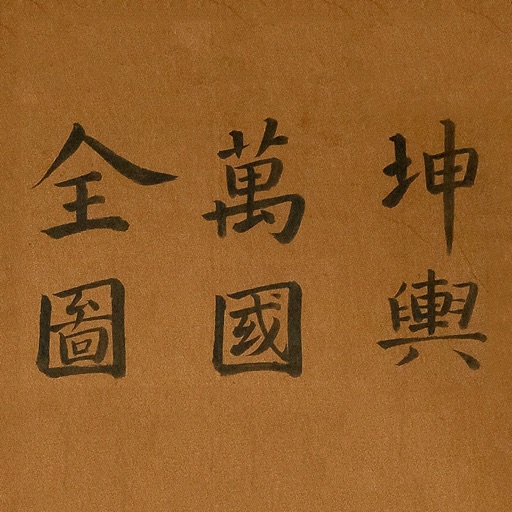 坤輿
萬國
全圖